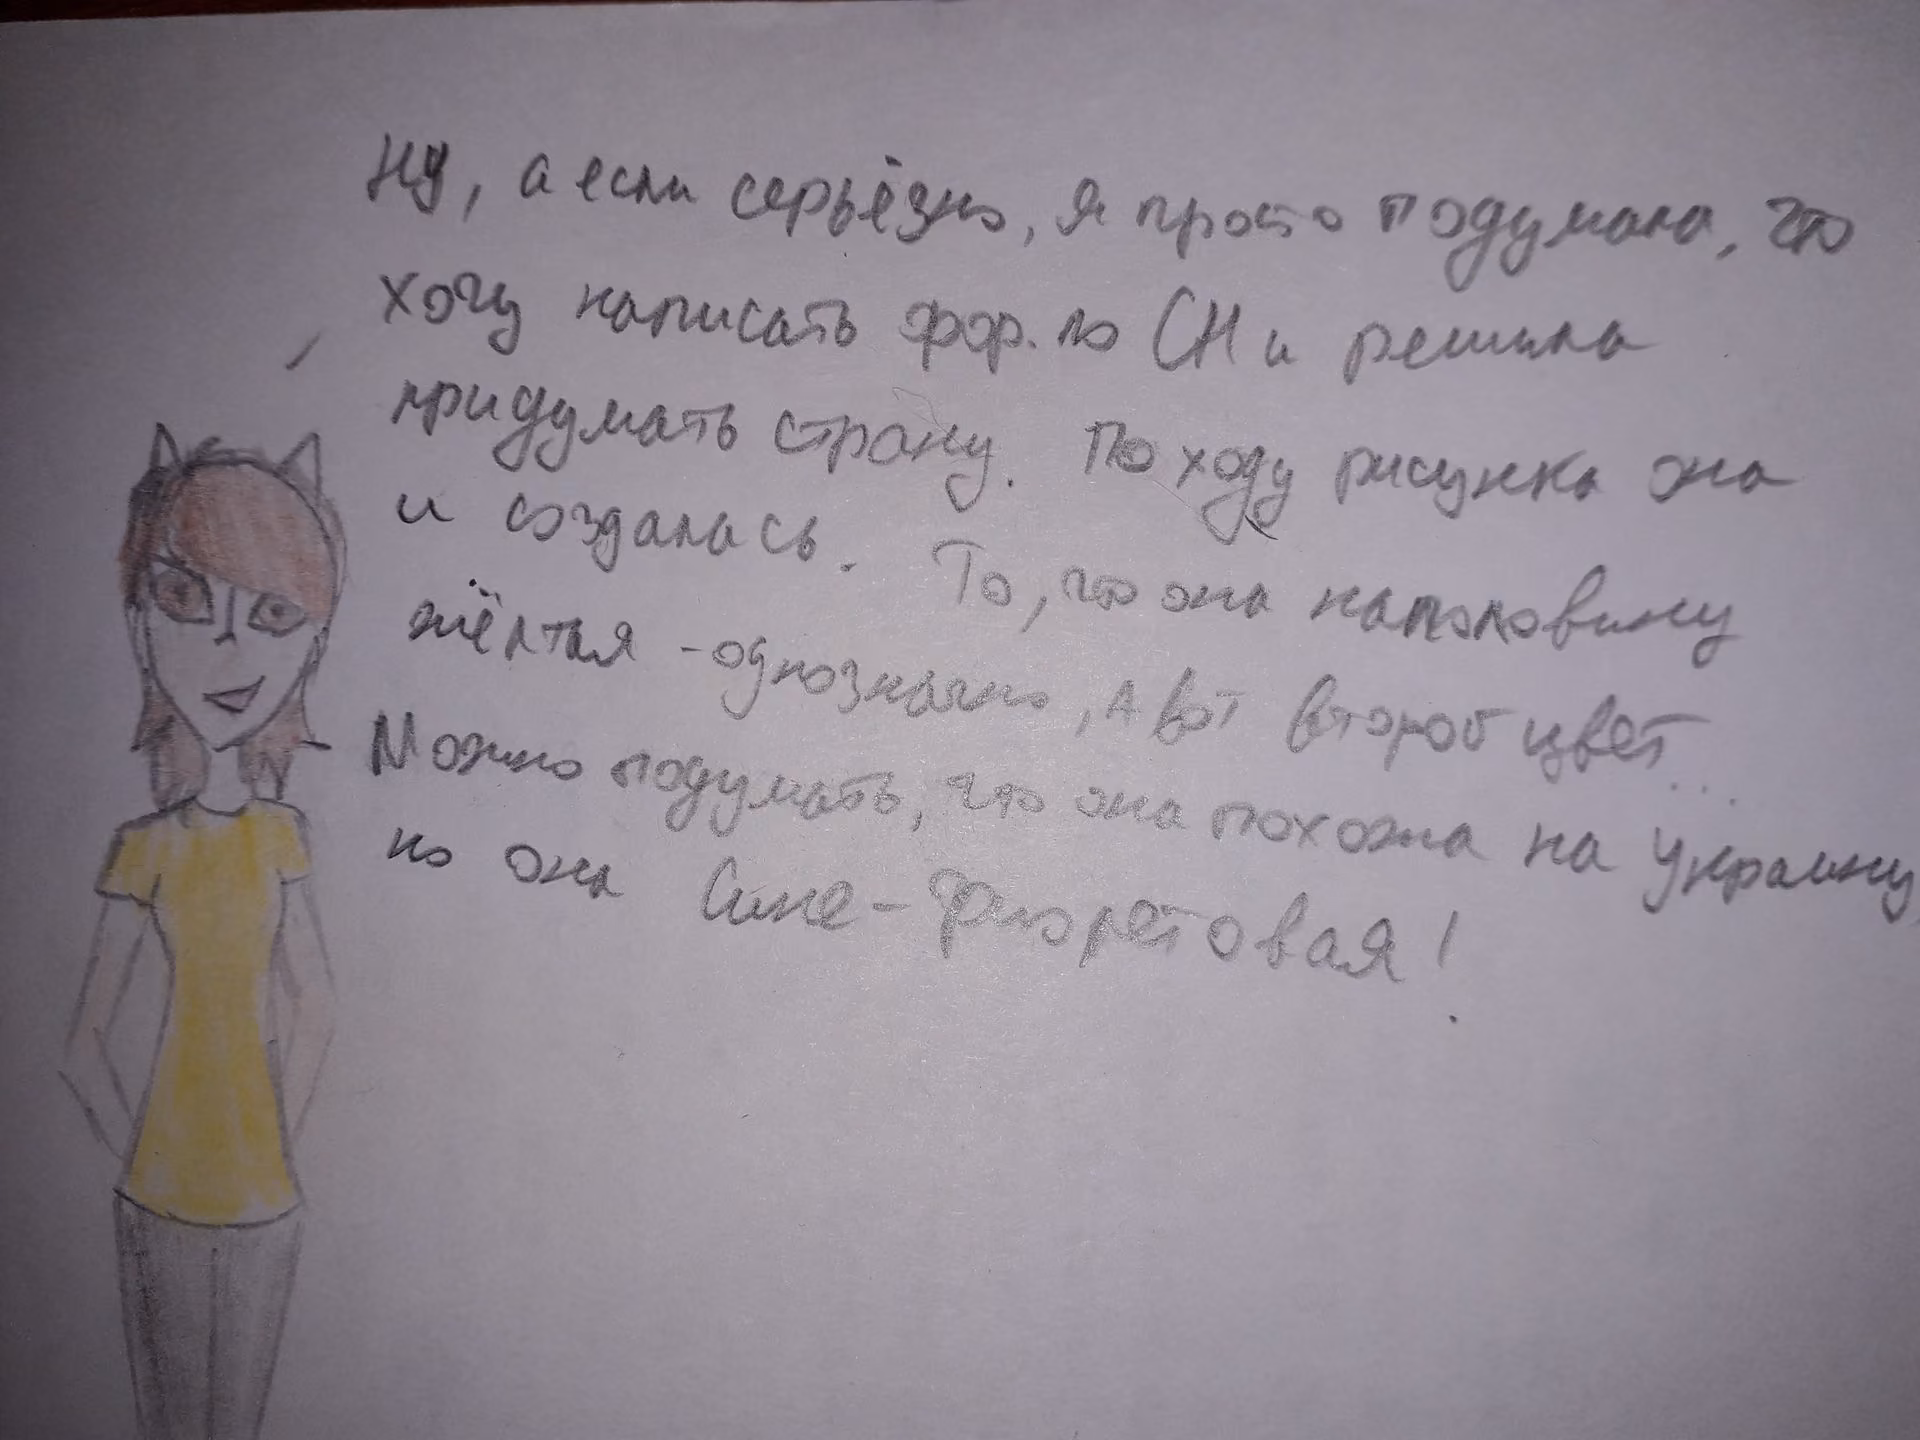 Ну, а если серьёзно, я просто подумала, что
хочу написать фор. по СН и решила
придумать страну. По ходу рисунка она
и создалась. То, что она наполовину
жёлтая - однозначно, А вот второй цвет...
Можно подумать, что она похожа на Украину,
но она Сине-фиолетовая!